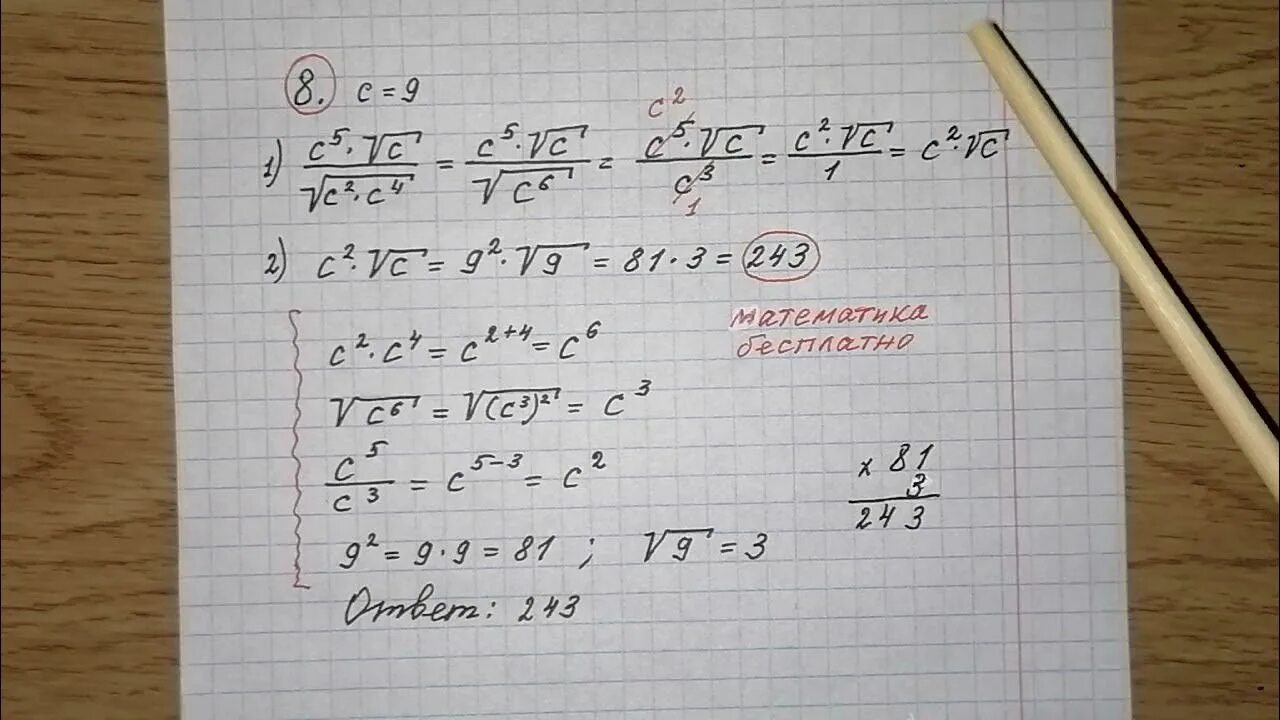 8. c = 9
1) c⁵·√c / √(c²·c⁴) = c⁵·√c / √(c⁶) = c⁵·√c / c³ = c²·√c / 1 = c²·√c
c²
1
2) c²·√c = 9²·√9 = 81·3 = 243
математика
бесплатно
c²·c⁴ = c²⁺⁴ = c⁶
√(c⁶) = √((c³)²) = c³
c⁵ / c³ = c⁵⁻³ = c²
x 81
3
243
9² = 9·9 = 81 ; √9 = 3
Ответ: 243